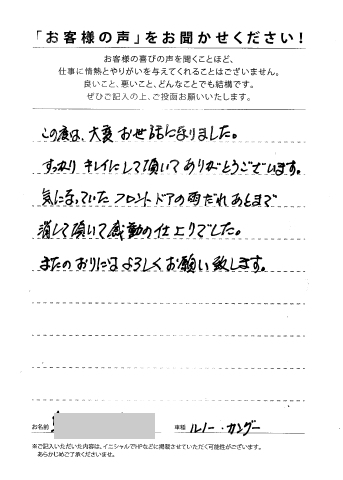 「お客様の声」をお聞かせください！
お客様の喜びの声を聞くことほど、
仕事に情熱とやりがいを与えてくれることはございません。
良いこと、悪いこと、どんなことでも結構です。
ぜひご記入の上、ご投函お願いいたします。
この度は、大変お世話になりました。
すっかりキレイにして頂いてありがとうございます。
気になっていたフロントドアの雨だれあとまで
消して頂いて感動の仕上りでした。
またのおりにはよろしくお願い致します。
お名前
車種 ルノー・カングー
※ご記入いただいた内容は、イニシャルでHPなどに掲載させていただく可能性がございます。
あらかじめご了承くださいませ。